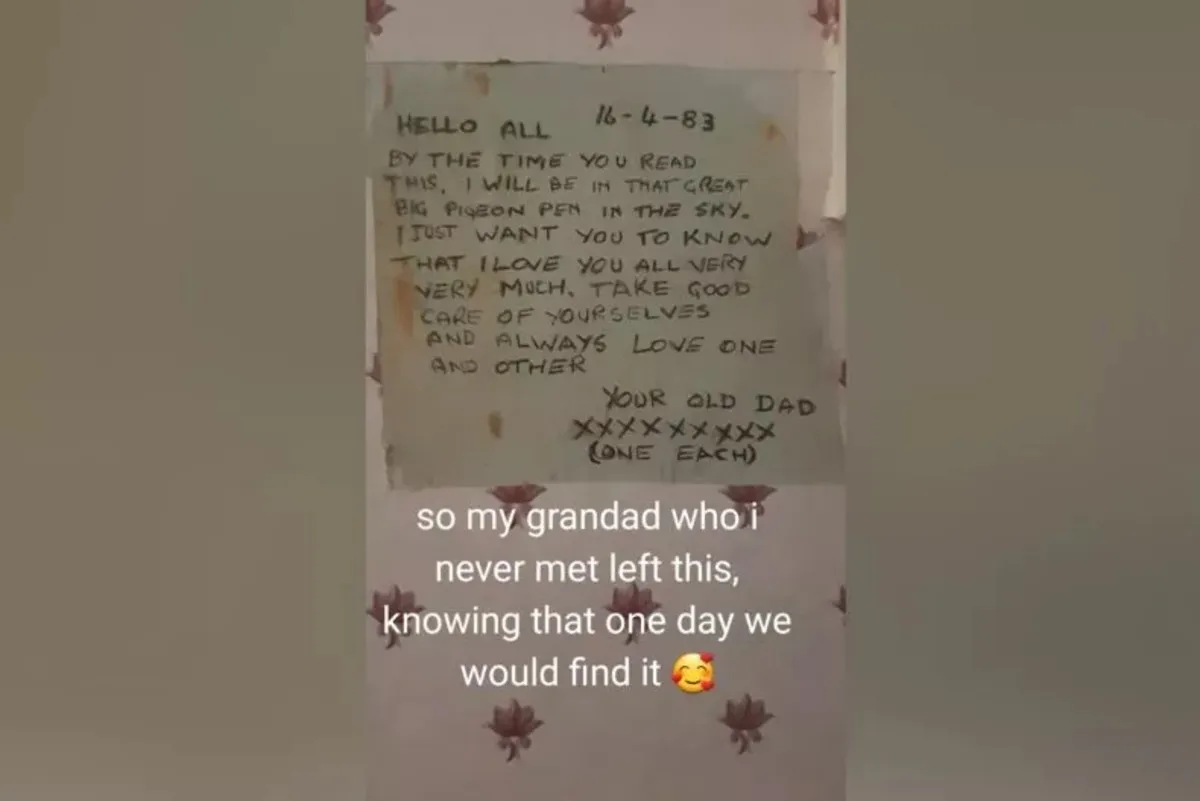 HELLO ALL 16-4-83
BY THE TIME YOU READ
THIS, I WILL BE IN THAT GREAT
BIG PIGEON PEN IN THE SKY.
I JUST WANT YOU TO KNOW
THAT I LOVE YOU ALL VERY
VERY MUCH. TAKE GOOD
CARE OF YOURSELVES
AND ALWAYS LOVE ONE
AND OTHER
YOUR OLD DAD
XXXXXXXXX
(ONE EACH)
so my grandad who i
never met left this,
knowing that one day we
would find it 🥰